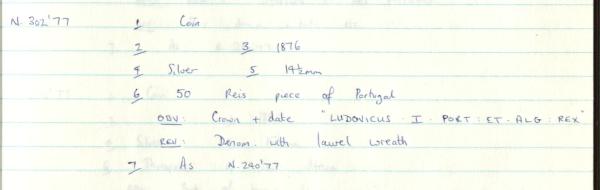 N. 302'77 1 Coin
2 3 1876
4 Silver 5 14½mm
6 50 Reis piece of Portugal
OBV: Crown + date "LUDOVICUS · I · PORT : ET · ALG : REX"
REV: Denom. with laurel wreath
7 As N.240'77